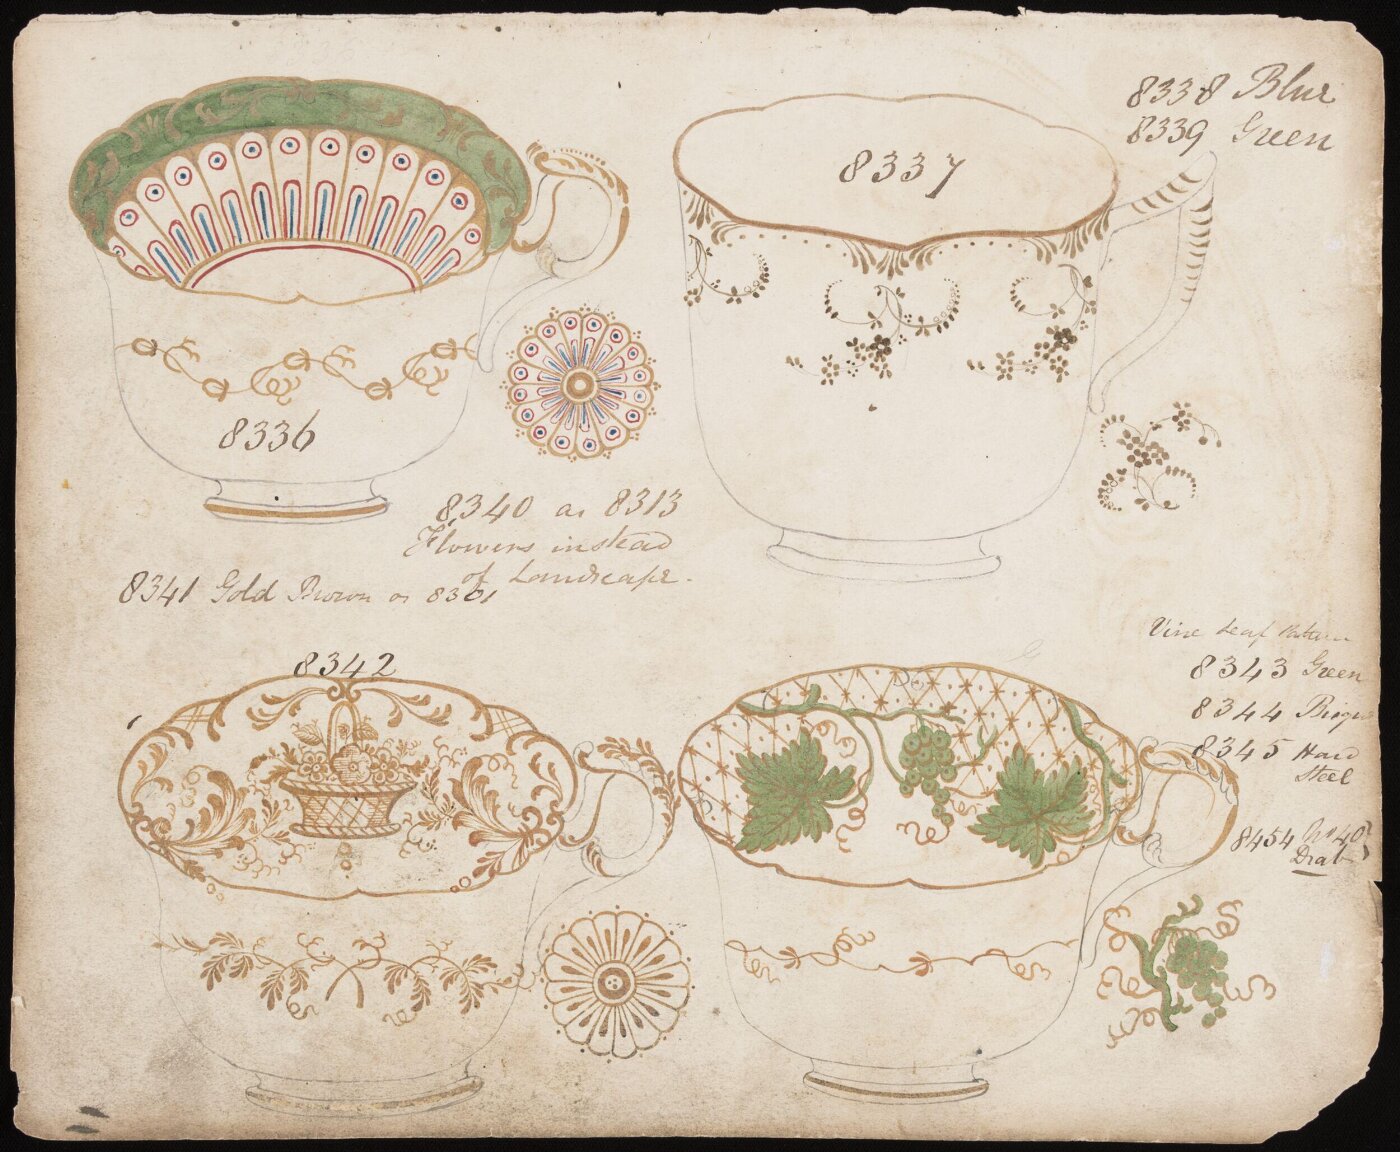 8338 Blue
8339 Green
8337
8336
8340 as 8313
Flowers instead
of Landscape.
8341 Gold Brown as 8301
8342
Vine Leaf Pattern
8343 Green
8344
8345 Hard
Steel
8454 No 40
Drab